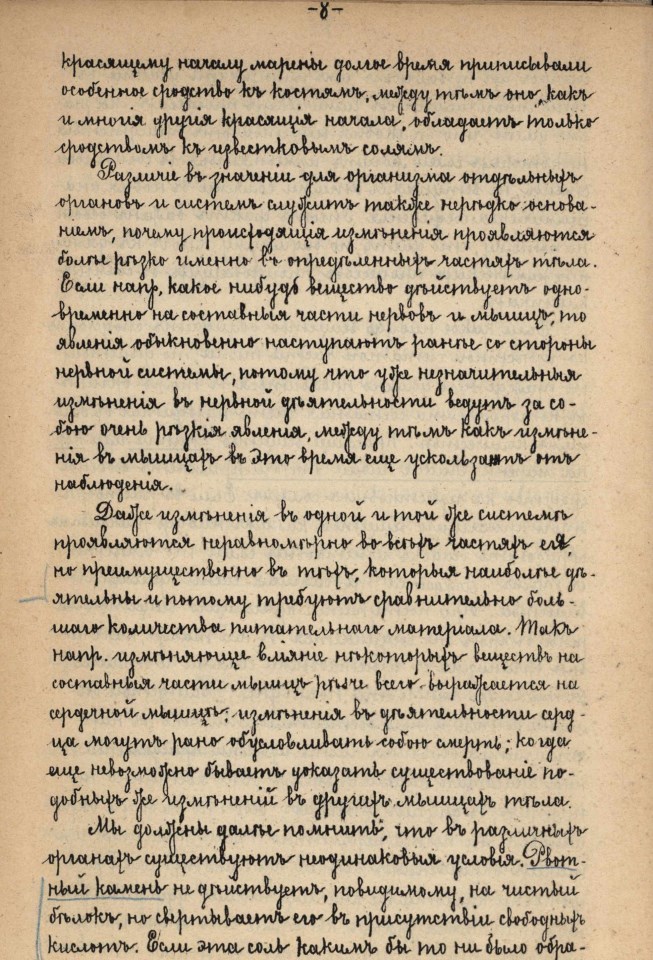 -8-
красящему началу марены долгое время приписывали
особенное сродство къ костямъ, между тѣмъ оно, какъ
и многія другія красящія начала, обладаетъ только
сродствомъ къ известковымъ солямъ.
Различіе въ значеніи для организма отдѣльныхъ
органовъ и системъ служитъ также нерѣдко основа-
ніемъ, почему происходящія измѣненія проявляются
болѣе рѣзко именно въ опредѣленныхъ частяхъ тѣла.
Если напр. какое нибудь вещество дѣйствуетъ одно-
временно на составныя части нервовъ и мышцъ, то
явленія обыкновенно наступаютъ ранѣе со стороны
нервной системы, потому что уже незначительныя
измѣненія въ нервной дѣятельности ведутъ за со-
бою очень рѣзкія явленія, между тѣмъ какъ измѣне-
нія въ мышцахъ въ это время еще ускользаютъ отъ
наблюденія.
Даже измѣненія въ одной и той же системѣ
проявляются неравномѣрно во всѣхъ частяхъ ея,
но преимущественно въ тѣхъ, которыя наиболѣе дѣ-
ятельны и потому требуютъ сравнительно боль-
шаго количества питательнаго матеріала. Такъ
напр. измѣняющее вліяніе нѣкоторыхъ веществъ на
составныя части мышцъ рѣзче всего выражается на
сердечной мышцѣ; измѣненія въ дѣятельности серд-
ца могутъ рано обусловливать собою смерть; когда
еще невозможно бываетъ доказать существованіе по-
добныхъ же измѣненій въ другихъ мышцахъ тѣла.
Мы должны далѣе помнить, что въ различныхъ
органахъ существуютъ неодинаковыя условія. Рвот-
ный камень не дѣйствуетъ, повидимому, на чистый
бѣлокъ, но свертываетъ его въ присутствіи свободныхъ
кислотъ. Если эта соль какимъ бы то ни было обра-